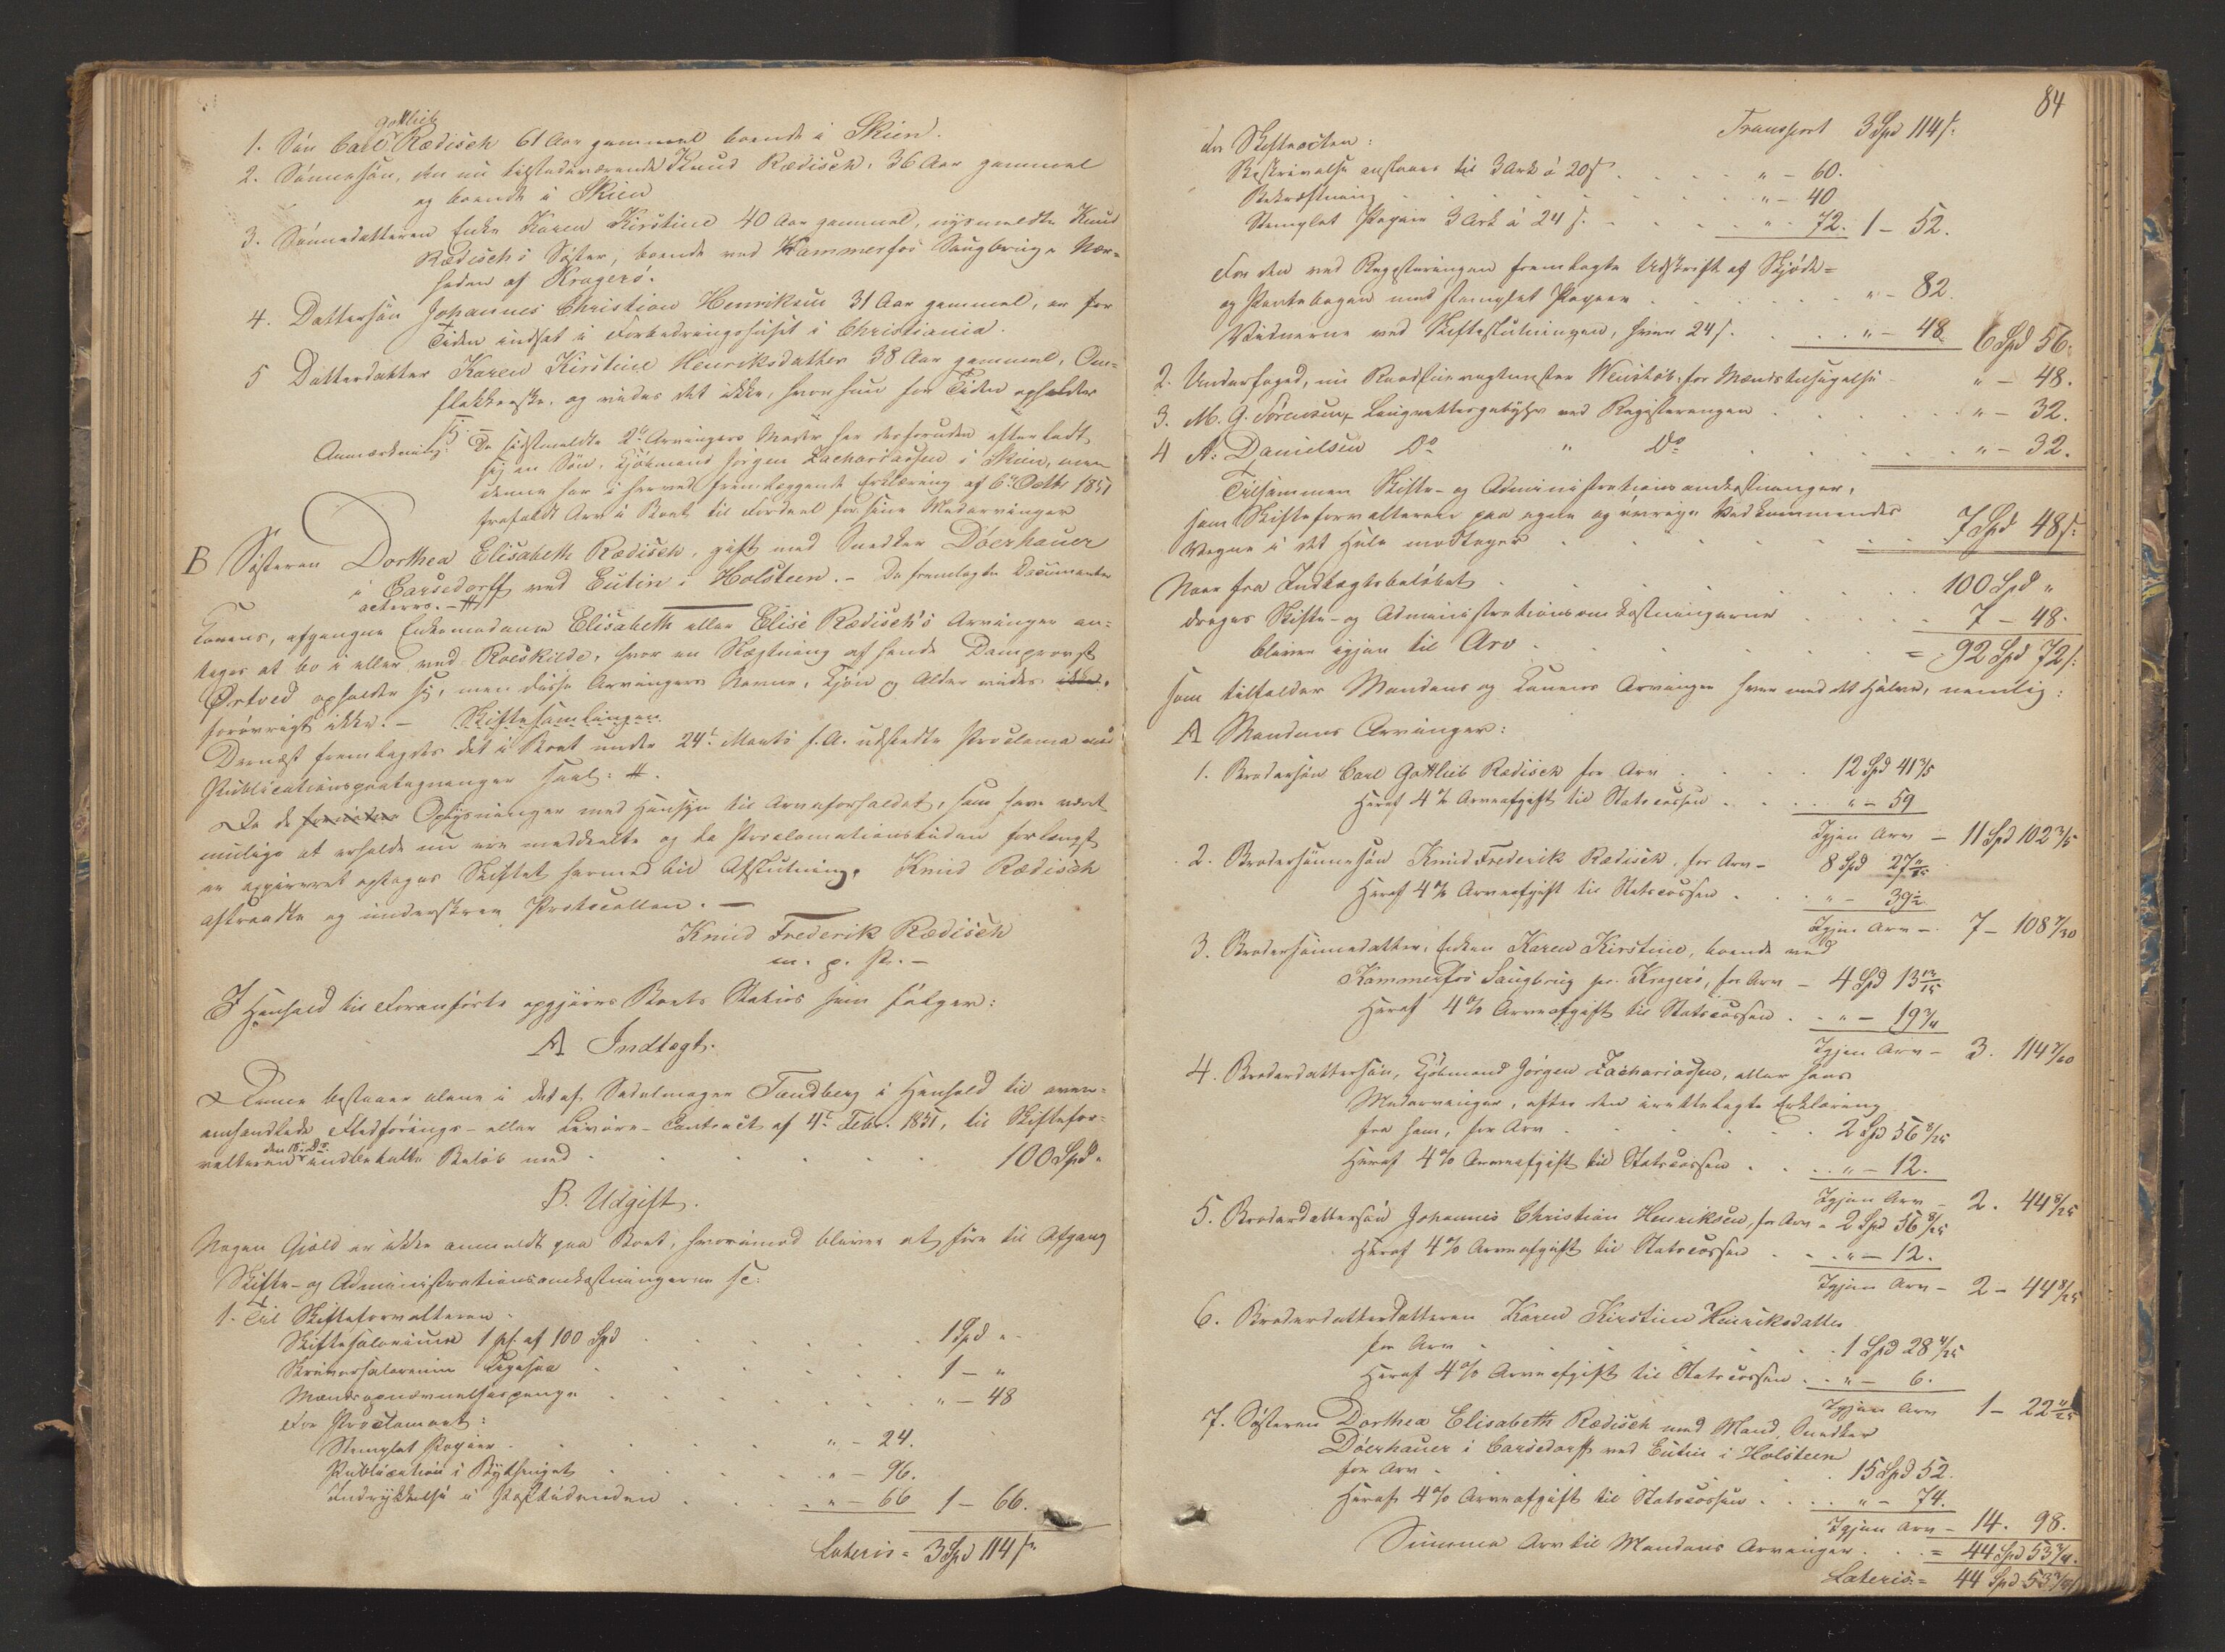 1. Sön Carl Gottlieb Rædisch 61 Aar gammel boende i Skien.
2. Sönnesön, den nu tilstedeværende Knud Rædisch, 36 Aar gammel
og boende i Skien
3. Sönnedatteren Enke Karen Kirstine 40 Aar gammel, nysmeldte Knud
Rædisch's Söster, boende ved Kammerfos Saugbrug i Nær-
heden af Kragerö.
4. Dattersön Johannes Christian Henriksen 31 Aar gammel, er for
Tiden indsat i Forbedringshuset i Christiania.
5 Datterdatter Karen Kirstine Henriksdatter 38 Aar gammel, Om-
flakkerske, og vides det ikke, hvor hun for Tiden opholder
sig.
Anmærkning: De sidstmeldte 2de Arvingers Moder har desforuden efterladt
sig en Sön, Kjöbmand Jörgen Zachariassen i Skien, men
denne har i herved fremlæggende Erklæring af 6te Octbr 1851
frafaldt Arv i Boet til Fordeel for sine Medarvinger
B Sösteren Dorthea Elisabeth Rædisch, gift med Snedker Döerhauer
i Carsedorff ved Eutin i Holsteen. – De fremlagte Documenter
acteres. – #
Konens, afgangne Enkemadame Elisabeth eller Elise Rædisch's Arvinger an-
tages at bo i eller ved Roeskilde, hvor en Slægtning af hende Damprovst
Örtved opholder sig, men disse Arvingers Navne, Kjön og Alder vides ikke.
forövrigt ikke. – Skiftesamlingen
Dernæst fremlagdes det i Boet under 24de Marts f. A. udstedte Proclama med
Publicationspaategninger saal: #.
Da de Oplysninger med Hensyn til Arveforholdet, som have været
mulige at erholde nu ere meddeelte og da Proclamationstiden forlængst
er expireret optages Skiftet hermed til Afslutning. Knud Rædisch
aftraadte og underskrev Protocollen. –
Knud Frederik Rædisch
m. p. P. –
I Henhold til Foranförte opgjöres Boets Status som fölger:
A Indtægt.
Denne bestaaer alene i det af Sadelmager Tandberg i Henhold til oven-
omhandlede Fledförings- eller Livöre-Contract af 4de Febr. 1851, til Skiftefor-
valteren den 18de Ds. indbetalte Belöb med . . . 100 Spd "
B. Udgift.
Nogen Gjæld er ikke anmeldt paa Boet, hvorimod bliver at före til Afgang
Skifte- og Administrationsomkostningerne sc:
1. Til Skifteforvalteren.
Skiftesalarium 1 pC. af 100 Spd . . . 1 Spd "
Skriversalarium Ligesaa . . . 1 – "
Mændsopnævnelsespenge . . . " – 48
For Proclamaet:
Stemplet Papiir . . . " – 24.
Publication i Bythinget . . . " – 96.
Indrykkelse i Hoftidenden . . . " – 66 1 – 66.
Lateris = 3 Spd 114 s.
84
Transport 3 Spd 114 s.
For Skifteacten:
Beskrivelse ansaaes til 3 Ark à 20 s . . . " – 60.
Bekræftning . . . " – 40
Stemplet Papiir 3 Ark à 24 s. . . . " – 72. 1 – 52.
For den ved Registeringen fremlagte Udskrift af Skjöde-
og Pantebogen med stemplet Papiir . . . " – 82.
Vidnerne ved Skifteslutningen, hver 24 s. . . . " – 48. 6 Spd 56.
2. Underfoged, nu for Mændstilsigelse " – 48.
3. M. G. Sörensen, Laugrettesgebyhr ved Registeringen . . . " – 32.
4 A. Danielsen Do " Do . . . " – 32.
Tilsammen Skifte- og Administrationsomkostninger,
som Skifteforvalteren paa egne og övrige Vedkommendes
Vegne i det Hele modtager . . . 7 Spd 48 s.
Naar fra Indtægtsbelöbet . . . 100 Spd "
drages Skifte- og Administrationsomkostningerne . . . 7 – 48.
bliver igjen til Arv . . . = 92 Spd 72 s.
som tilfalder Mandens og Konens Arvinger hver med det Halve, nemlig:
A Mandens Arvinger:
1. Brodersön Carl Gottlieb Rædisch for Arv . . . 12 Spd 41 3/5
Heraf 4 % Arveafgift til Statscassen . . . " – 59
Igjen Arv – 11 Spd 102 3/5
2. Brodersönnesön Knud Frederik Rædisch, for Arv – 8 Spd 27 11/15
Heraf 4 % Arveafgift til Statscassen . . . " – 39 1/2
Igjen Arv – 7 – 108 7/30
3. Brodersönnedatter, Enken Karen Kirstine, boende ved
Kammerfos Saugbrug pr. Kragerö, for Arv – 4 Spd 13 13/15
Heraf 4 % Arveafgift til Statscassen . . . " – 19 3/4
Igjen Arv – 3. 114 7/60
4. Broderdattersön, Kjöbmand Jörgen Zachariassen, eller hans
Medarvinger, efter den irettelagte Erklæring
fra ham, for Arv . . . 2 Spd 56 8/25
Heraf 4 % Arveafgift til Statscassen . . . " – 12.
Igjen Arv – 2. 44 8/25
5. Broderdattersön Johannes Christian Henriksen, for Arv – 2 Spd 56 8/25
Heraf 4 % Arveafgift til Statscassen . . . " – 12.
Igjen Arv – 2 – 44 8/25
6. Broderdatterdatteren Karen Kirstine Henriksdatter
for Arv . . . 1 Spd 28 4/25
Heraf 4 % Arveafgift til Statscassen . . . " – 6.
Igjen Arv 1 – 22 4/25
7. Sösteren Dorthea Elisabeth Rædisch med Mand, Snedker
Döerhauer i Carsedorff ved Eutin i Holsteen
for Arv . . . 15 Spd 52.
Heraf 4 % Arveafgift til Statscassen . . . " – 74.
Igjen Arv – 14. 98.
Summa Arv til Mandens Arvinger . . . = 44 Spd 53 3/4.
Lateris = 44 Spd 53 3/4 s